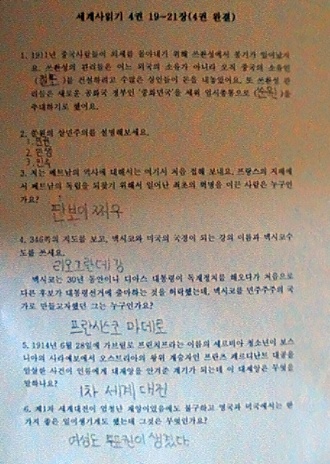 세계사읽기 4권 19-21장(4권 완결)
1. 1911년 중국사람들이 외세를 몰아내기 위해 쓰촨성에서 봉기가 일어났지
요. 쓰촨성의 관리들은 어느 외국의 소유가 아니라 오직 중국의 소유인
(철도)를 건설하려고 수많은 상인들이 돈을 내놓았어요. 또 쓰촨성 관
리들은 새로운 공화국 정부인 '중화민국'을 세워 임시총통으로 (쑨원)을
추대하기로 했어요.
2. 쑨원의 삼민주의를 설명해보세요.
1. 민권
2. 민생
3. 민족
3. 저는 베트남의 역사에 대해서는 여기서 처음 접해 보네요. 프랑스의 지배에
서 베트남의 독립을 되찾기 위해서 일어난 최초의 혁명을 이끈 사람은 누구인
가요?
판보이 쩌우
4. 346쪽의 지도를 보고, 멕시코와 미국의 국경이 되는 강의 이름과 멕시코수
도를 쓰세요.
리오그란데 강
멕시코는 30년 동안이나 디아스 대통령이 독재정치를 해오다가 처음으로
다른 후보가 대통령선거에 출마하는 것을 허락했는데, 멕시코를 민주주의 국
가로 만들고자했던 그는 누구인가요?
프란시스코 마데로
5. 1914년 6월 28일에 가브릴로 프린치프라는 이름의 세르비아 청소년이 보스
니아의 사라예보에서 오스트리아의 왕위 계승자인 프란츠 페르디난트 대공을
암살한 사건이 인류에게 대재앙을 안겨준 계기가 되는데 이 대재앙은 무엇을
말하나요?
1차 세계 대전
6. 제1차 세계대전이 엄청난 재앙이었음에도 불구하고 영국과 미국에서는 한
가지 좋은 일이생기게도 했는데 그것은 무엇인가요?
여성도 투표권이 생겼다